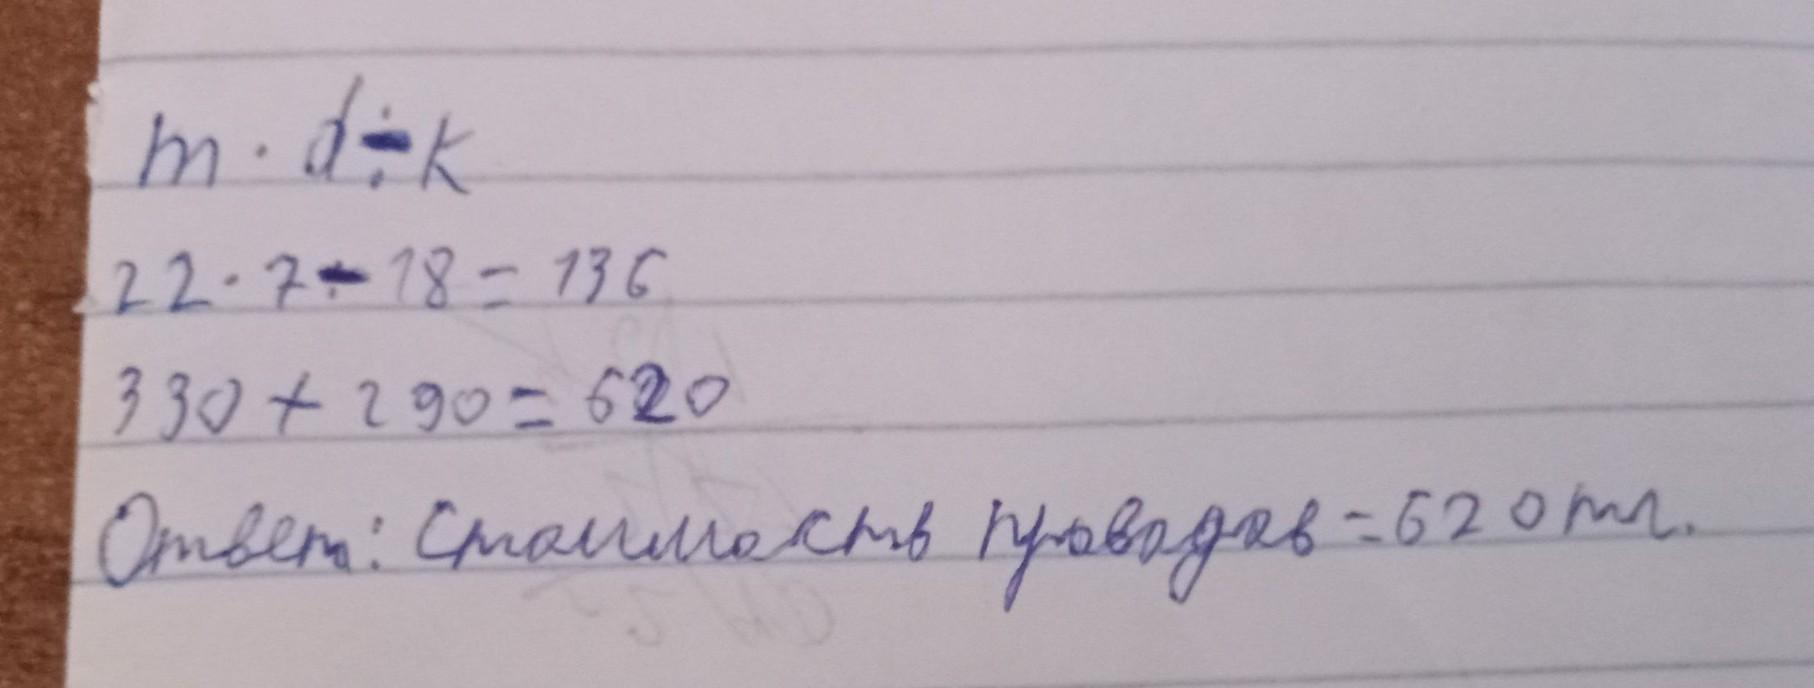 m · d ÷ k
22 · 7 - 18 = 136
330 + 290 = 620
Ответ: Стоимость проводов = 620 тг.